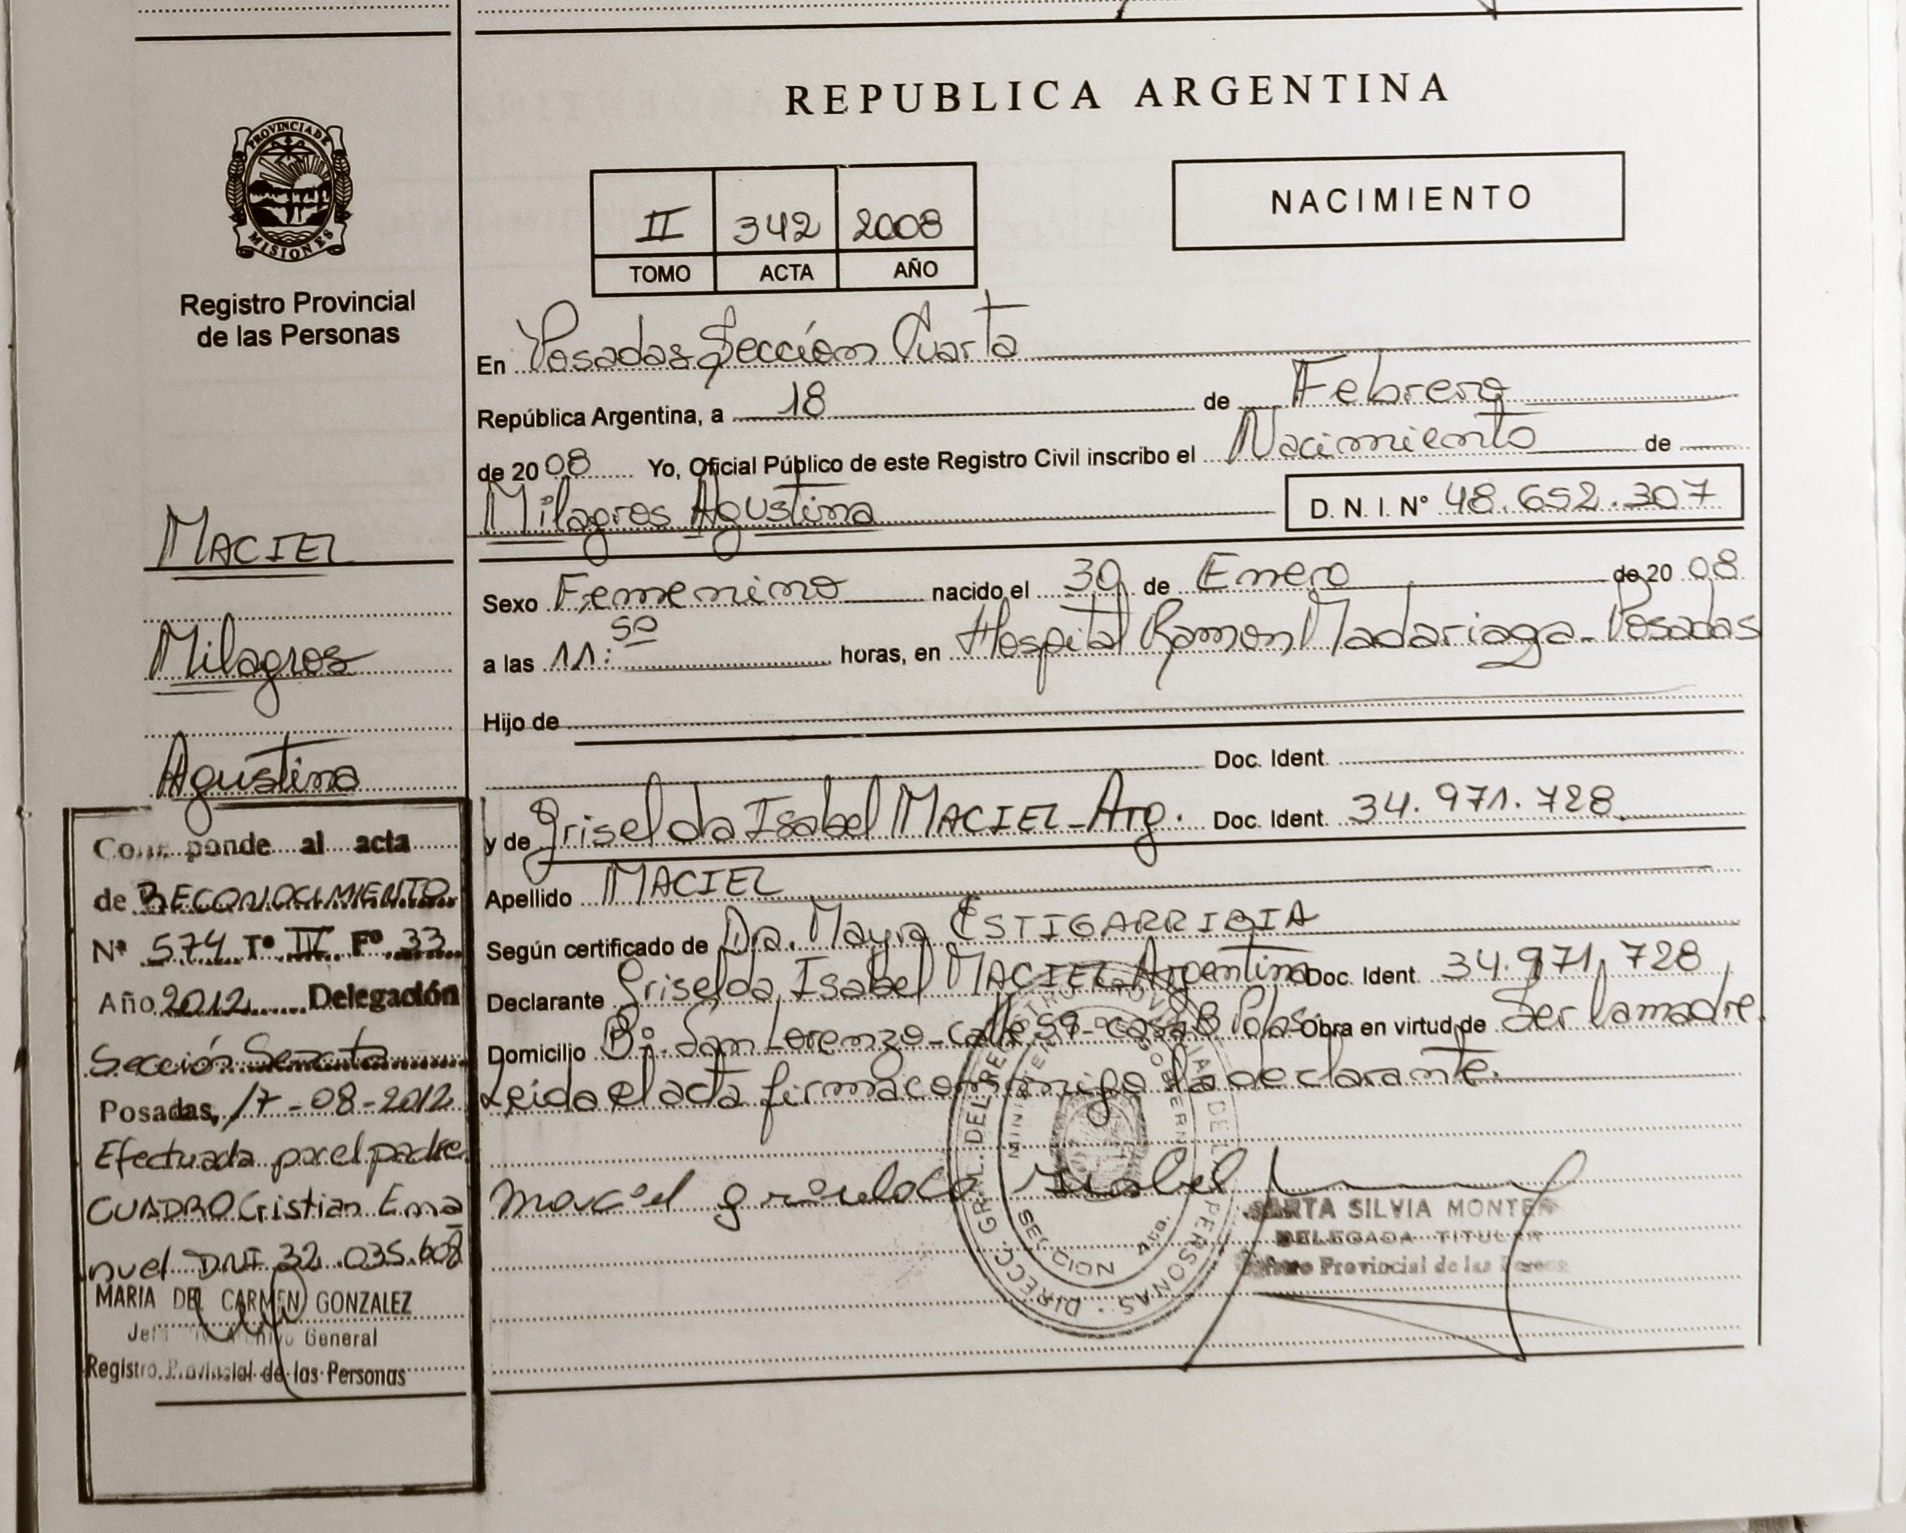 REPUBLICA ARGENTINA
PROVINCIA DE
MISIONES
Registro Provincial
de las Personas
II 342 2008
TOMO ACTA AÑO
NACIMIENTO
En Posadas Sección Cuarta
República Argentina, a 18 de Febrero
de 2008 Yo, Oficial Público de este Registro Civil inscribo el Nacimiento de
Milagros Agustina D. N. I. Nº 48.652.307
Sexo Femenino nacido el 30 de Enero de 2008
a las 11:50 horas, en Hospital Ramon Madariaga - Posadas
Hijo de
Doc. Ident.
y de Griselda Isabel MACIEL - Arg. Doc. Ident. 34.971.728
Apellido MACIEL
Según certificado de Dra. Mayra ESTIGARRIBIA
Declarante Griselda Isabel MACIEL Argentina Doc. Ident. 34.971.728
Domicilio Bº San Lorenzo - calle 59 - casa 8 Pdas Obra en virtud de Ser la madre.
Leida el acta firma conmigo la declarante.
maciel griselda isabel
SILVIA MONTE
DELEGADA TITULAR
Provincial de las
SECCION 4ta.
MACIEL
Milagros
Agustina
Corresponde al acta
de RECONOCIMIENTO
Nº 574 Tº III Fº 33
Año 2012 Delegación
Sección
Posadas, 17-08-2012
Efectuada por el padre
CUADRO Cristian Ema
nuel DNI 32.035.608
MARIA DEL CARMEN GONZALEZ
General
Registro Provincial de las Personas